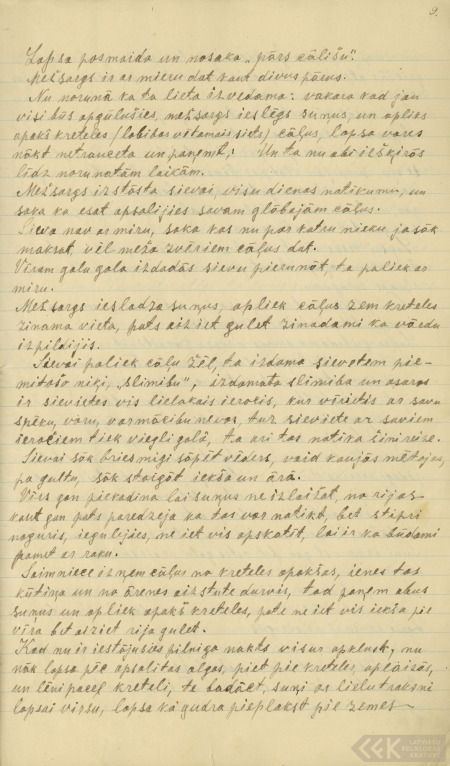 9.
Lapsa posmaida un nosaka „pārs cālīšu".
Mežsargs ir ar mieru dat kaut divus pārus.
Nu norunā ka ta lieta izvedama: vakara kad jau
visi būs apgulušies, mežsargs ieslēgs suņus, un apliks
apakš kreteles /labibas vētamais siets/ cāļus, lapsa vares
nākt netrauceta un paņemt; Un ta nu abi izšķirās
līdz norunatām laikām.
Mežsargs izstāsta sievai, visu dienas notikumu, un
saka ka esat apsolijies savam glābajām cāļus.
Sieva nav ar miru, saka kas nu par katru nieku ja sāk
maksat, vēl meža zvēriem cāļus dat.
Vīram galu gala izdodās sievu pierunāt, ta paliek ar
miru.
Mežsargs iesladza suņus, apliek cāļus zem kreteles
zinama vieta, pats aiziet gulet zinadami ka vārdu
izpildijis.
Sievai paliek cāļu žēl, ta izdoma sievetem pie-
mitošo niķi, „slimibu", izdomata slimiba un asaras
ir sievietes vis lielakais ierocis, kur vīrietis ar savu
spēku, varu, varmācibu nevar, tur sieviete ar saviem
ieročiem tiek viegli galā, ta arī tas notika šinī reize.
Sievai sāk briesmigi sāpēt vēders, vaid kaujās mētajas,
pa gultu, sāk staigāt iekša un ārā.
Vīrs gan piekodina lai suņus ne izlaižat, no rijas
kaut gan pats paredzeja ka tas var notikt, bet stipri
noguris, iegulējies, ne iet vis apskatit, lai ir ka būdami
ņamet ar roku.
Saimniece izņem cāļus no kreteles apakšas, ienes tos
kūtiņa un no ārenes aizstute durvis, tad paņem abus
suņus un apliek apakš kreteles, pate ne iet vis iekša pie
vīra bet aiziet rija gulet.
Kad nu ir iestājusies pilniga nakts visur apklust, nu
nāk lapsa pēc apsolitas algas, piet pie kreteles, aplaizās,
un lēni paceļ kreteli, te badāct, suņi ar lielu troksni
lapsai virsu, lapsa ka gudra pieplakst pie zemes
LATVIEŠU FOLKLORAS KRĀTUVE